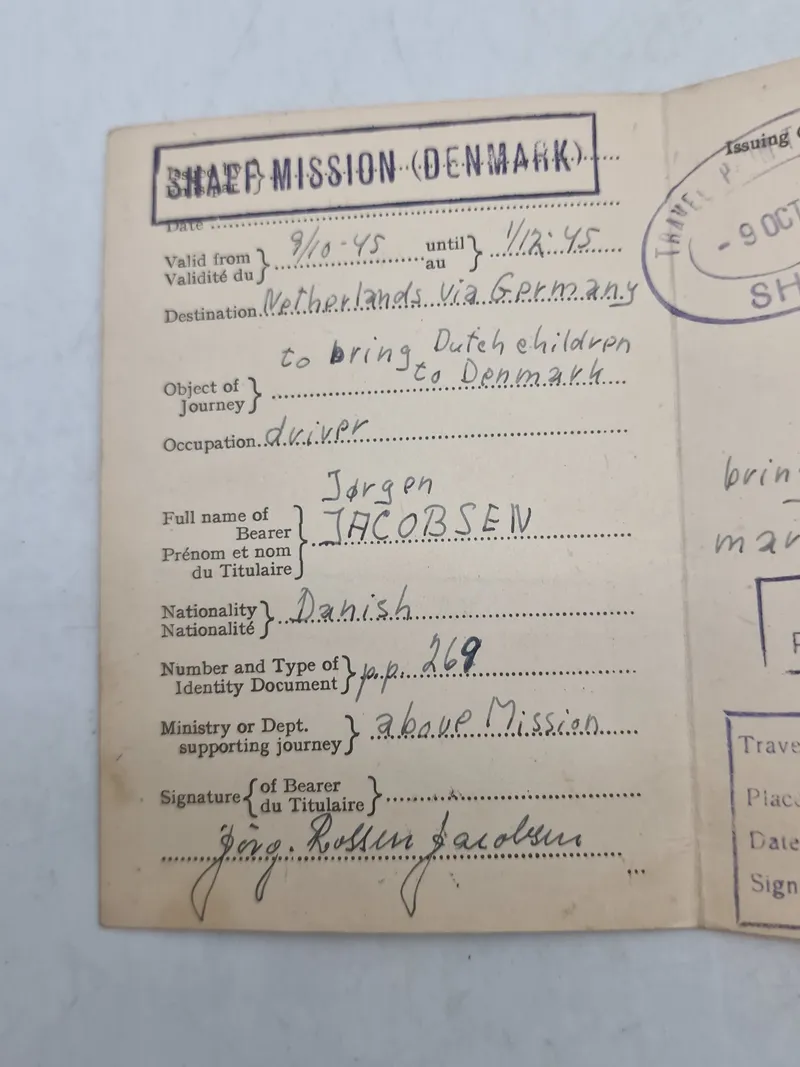 SHAEF MISSION (DENMARK)
Date
Valid from 9/10-45 until 1/12-45
Validité du au
Destination Netherlands via Germany
to bring Dutch children
to Denmark
Object of
Journey
Occupation driver
Jørgen
Full name of
Bearer JACOBSEN
Prénom et nom
du Titulaire
Nationality Danish
Nationalité
Number and Type of
Identity Document p.p. 269
Ministry or Dept. above Mission
supporting journey
Signature of Bearer
du Titulaire
Jørg. Jacobsen
Issuing
TRAVEL
- 9 OCT
SH
brin
mar
Trave
Plac
Date
Sign